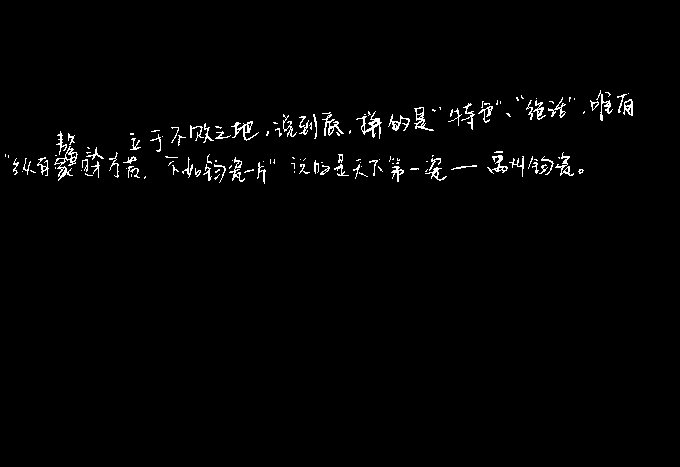 立于不败之地，说到底，拼的是“特色”、“绝活”，唯有
“纵有家财万贯，不如钧瓷一片”说的是天下第一瓷——禹州钧瓷。